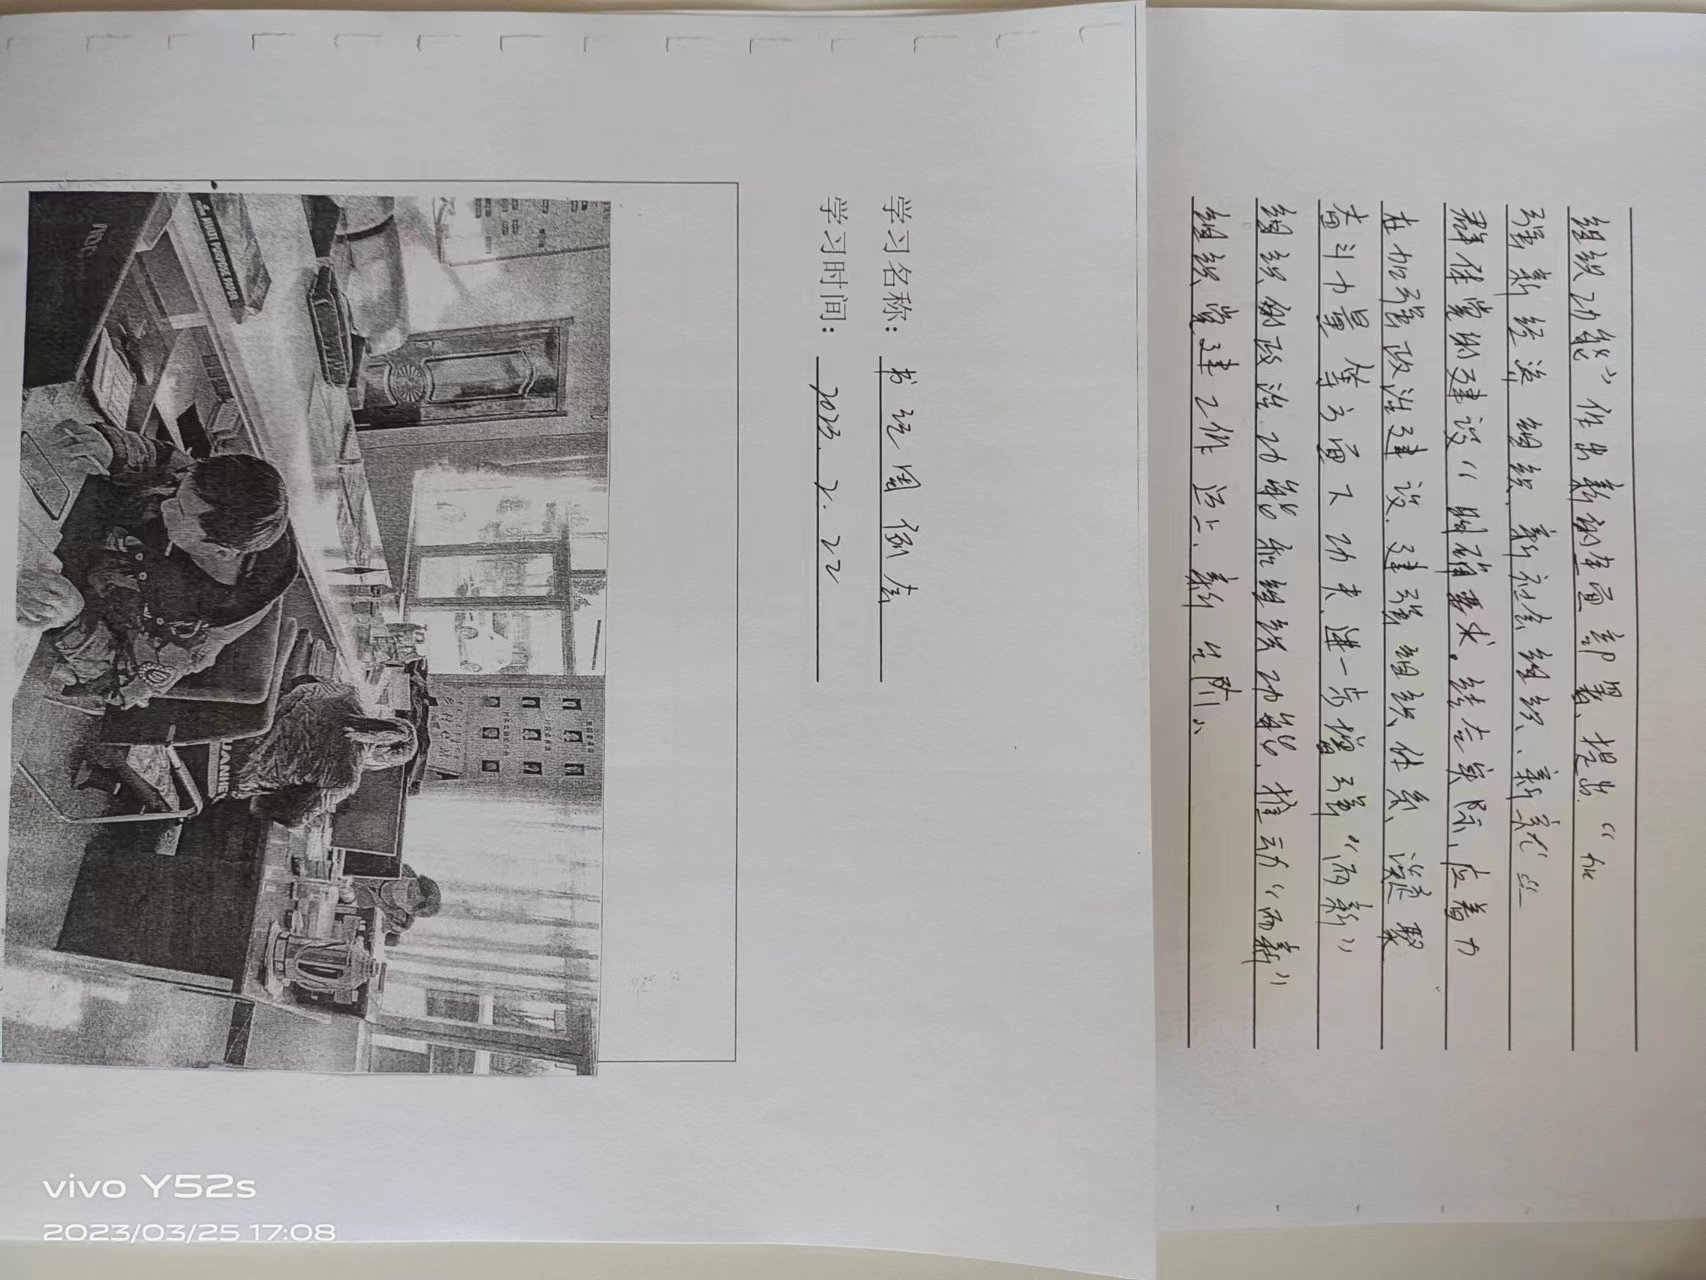 组织功能”作出新的全面部署、提出“加
强新经济组织、新社会组织、新就业
群体党的建设“明确要求。结合实际、应着力
在加强政治建设、建强组织体系、凝聚
奋斗力量等方面下功夫、进一步增强“两新”
组织的政治功能和组织功能、推动“两新”
组织党建工作迈上新台阶。
学习名称：书记周例会
学习时间：2023.2.22
vivo Y52s
2023/03/25 17:08